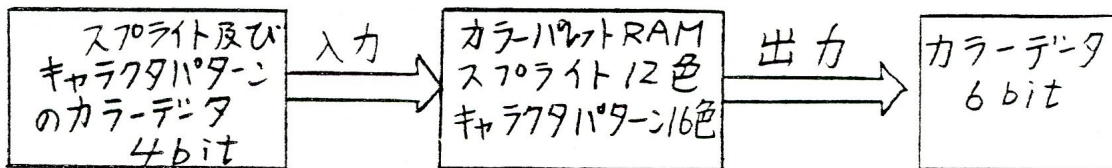 スプライト及び
キャラクタパターン
のカラーデータ
4bit
入力
カラーパレットRAM
スプライト12色
キャラクタパターン16色
出力
カラーデータ
6bit